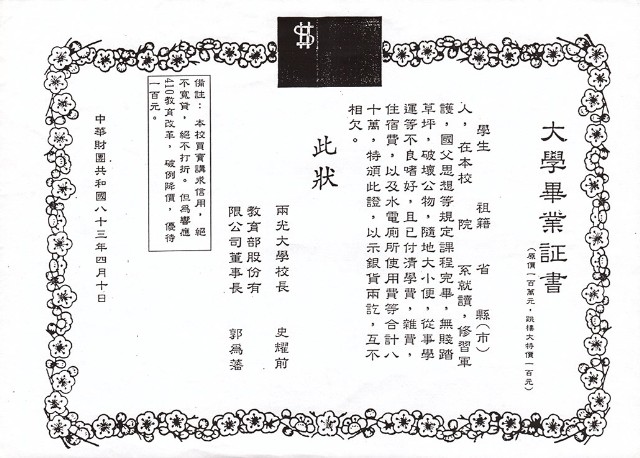 大學畢業証書
(原價一百萬元,跳樓大特價一百元)
學生 祖籍 省 縣(市)
人,在本校 院 系就讀,修習軍
護,國父思想等規定課程完畢,無賤踏
草坪,破壞公物,隨地大小便,從事學
運等不良嗜好,且已付清學費,雜費,
住宿費,以及水電廁所使用費等合計八
十萬,特頒此證,以示銀貨兩訖,互不
相欠。
此狀
兩光大學校長 史耀前
教育部股份有
限公司董事長 郭為藩
備註:本校買賣講求信用,絕
不寬貸,絕不打折。但為響應
410教育改革,破例降價,優待
一百元。
中華財團共和國八十三年四月十日